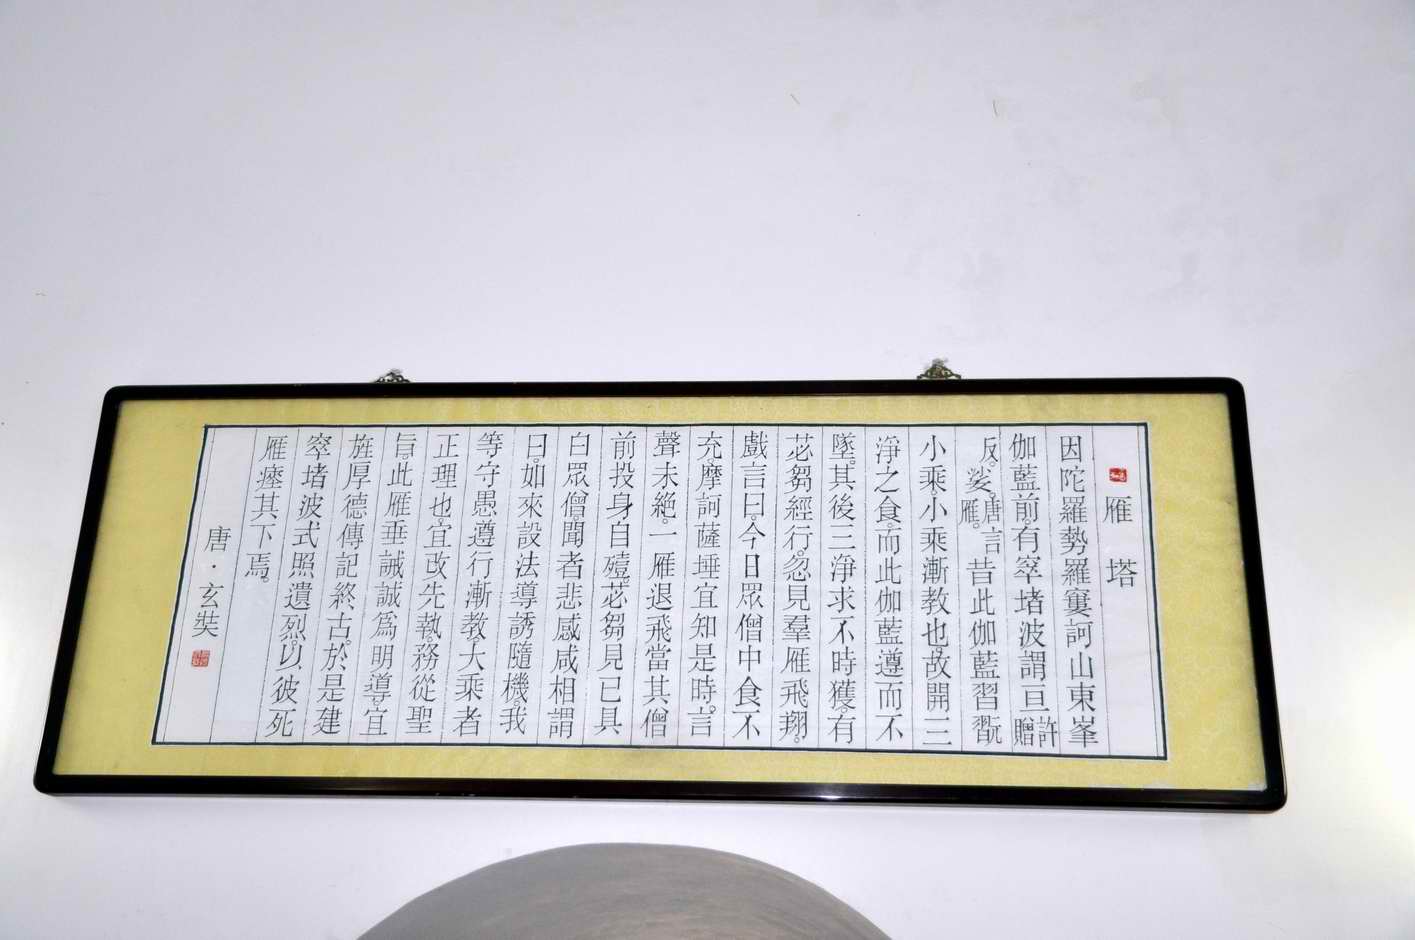 雁塔
因陀羅勢羅窶訶山東峯
伽藍前。有窣堵波謂亘許贈
反。娑。唐言雁。昔此伽藍習翫
小乘。小乘漸教也。故開三
淨之食。而此伽藍遵而不
墜。其後三淨求不時獲。有
苾芻經行。忽見羣雁飛翔。
戲言曰。今日眾僧中食不
充摩訶薩埵宜知是時。言
聲未絕。一雁退飛當其僧
前投身自殪。苾芻見已具
白眾僧。聞者悲感咸相謂
曰。如來設法導誘隨機。我
等守愚遵行漸教。大乘者
正理也。宜改先執。務從聖
旨。此雁垂誡誠為明導。宜
旌厚德傳記終古。於是建
窣堵波式照遺烈。以彼死
雁瘞其下焉。
唐·玄奘